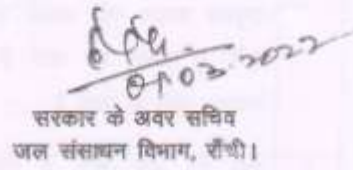 01.03.2022
सरकार के अवर सचिव
जल संसाधन विभाग, राँची।